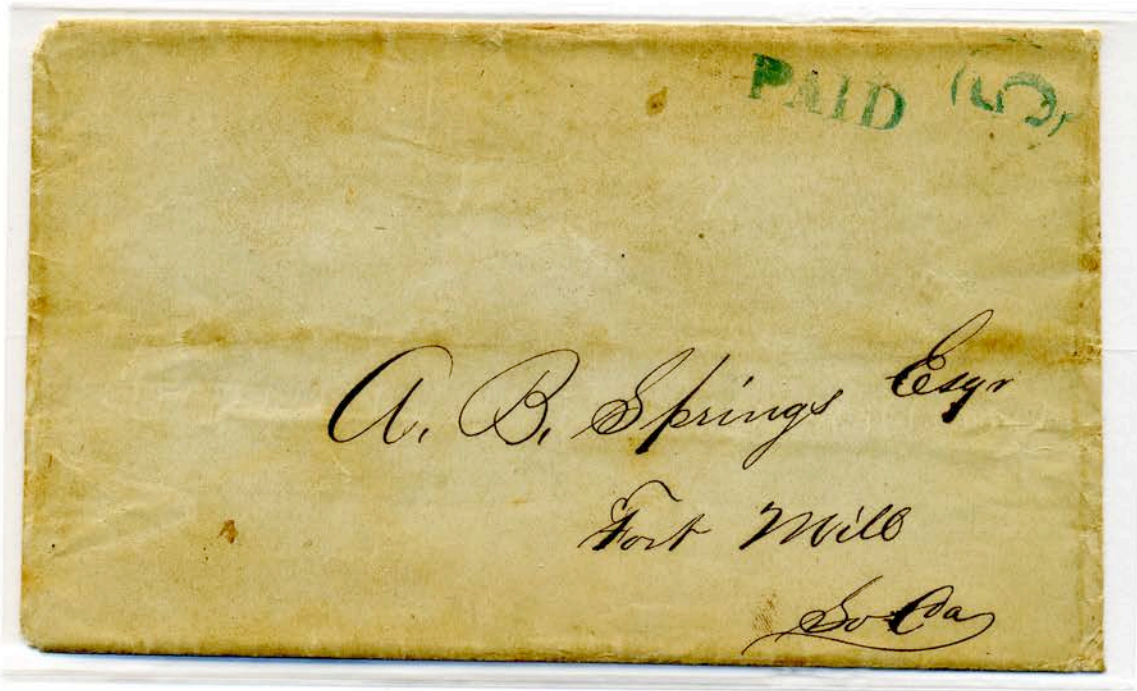 PAID 5
A. B. Springs Esqr
Fort Mill
So Ca